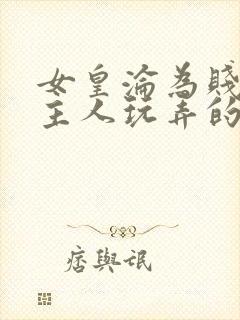 女皇淪為賤
主人玩弄的
痞與氓